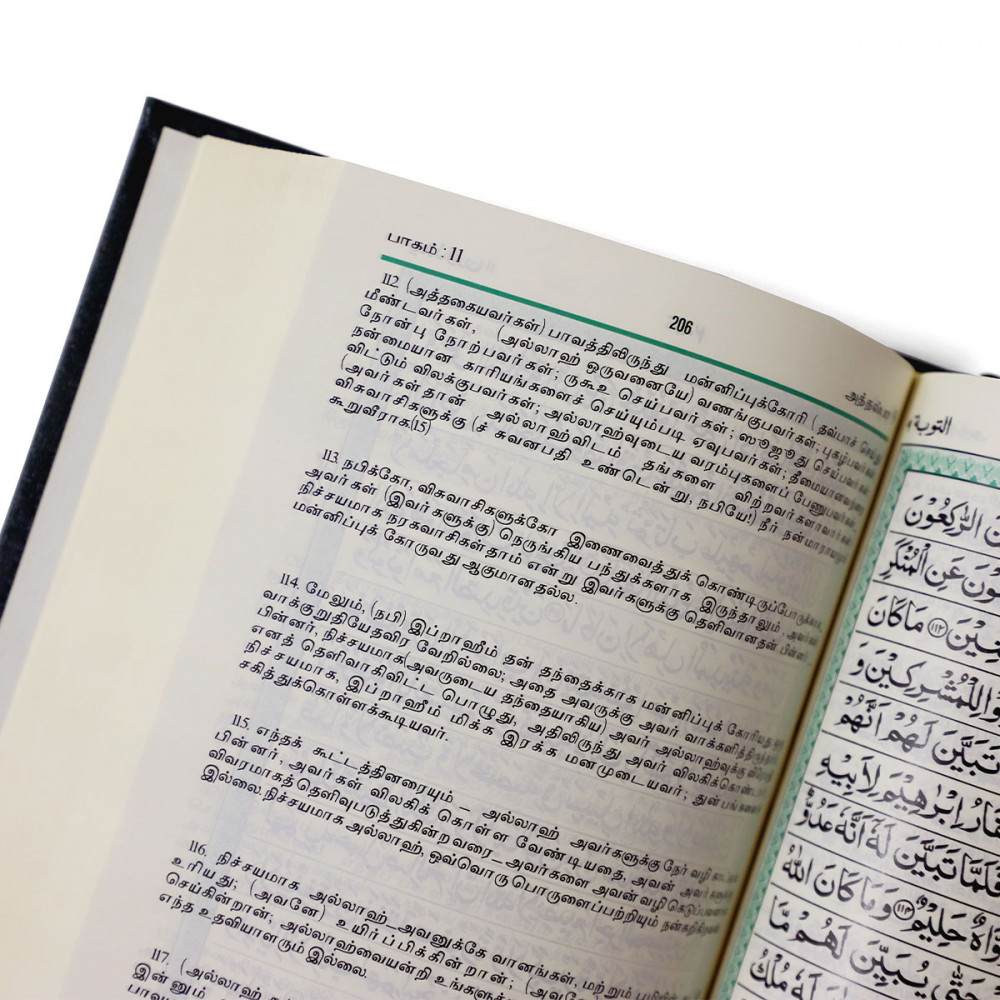 பாகம் : 11
206
அத்தவ்பா
112. (அத்தகையவர்கள்) பாவத்திலிருந்து மன்னிப்புக்கோரி ( தவ்பாச் செய்து
மீண்டவர்கள், (அல்லாஹ் ஒருவனையே) வணங்குபவர்கள்; புகழ்பவர்கள்
நோன்பு நோற்பவர்கள்; ருகூஉ செய்பவர்கள்; ஸுஜூது செய்பவர்கள்
நன்மையான காரியங்களைச் செய்யும்படி ஏவுபவர்கள்; தீமையானவற்றை
விட்டும் விலக்குபவர்கள்; அல்லாஹ்வுடைய வரம்புகளைப் பேணுபவர்கள்
(அவர்கள்தான் அல்லாஹ்விடம் தங்களை விற்றவர்களாவார்கள்
விசுவாசிகளுக்கு (ச் சுவனபதி உண்டென்று, நபியே!) நீர் நன்மாராயம்
கூறுவீராக.(15)
113 நபிக்கோ, விசுவாசிகளுக்கோ இணைவைத்துக் கொண்டிருப்போருக்காக,
அவர்கள் (இவர்களுக்கு) நெருங்கிய பந்துக்களாக இருந்தாலும் , அவர்கள்
நிச்சயமாக நரகவாசிகள்தாம் என்று இவர்களுக்கு தெளிவானதன் பின்னர்
மன்னிப்புக் கோருவது ஆகுமானதல்ல.
114. மேலும், (நபி) இப்றாஹீம் தன் தந்தைக்காக மன்னிப்புக் கோரியது
வாக்குறுதியேதவிர வேறில்லை; அதை அவருக்கு அவர் வாக்களித்திருந்தார்
பின்னர், நிச்சயமாக(அவருடைய தந்தையாகிய) அவர் அல்லாஹ்வுக்கு
எனத் தெளிவாகிவிட்ட பொழுது, அதிலிருந்து அவர் விலகிக்கொண்டார்
நிச்சயமாக, இப்றாஹீம் மிக்க இரக்க மனமுடையவர்; துன்பங்களை
சகித்துக்கொள்ளக்கூடியவர்.
115. எந்தக் கூட்டத்தினரையும் – அல்லாஹ் அவர்களுக்கு நேர் வழி
பின்னர், அவர்கள் விலகிக் கொள்ள வேண்டியதை, அவன் அவர்களுக்கு
விவரமாகத் தெளிவுபடுத்துகின்றவரை_அவர்களை அவன் வழி கெடுப்பவனாக
இல்லை.நிச்சயமாக அல்லாஹ், ஒவ்வொரு பொருளைப்பற்றியும் நன்கறிகிறவன்
116. நிச்சயமாக அல்லாஹ்_அவனுக்கே வானங்கள், மற்றும் பூமியின்
உரியது; (அவனே) உயிர்ப்பிக்கின்றான்;
செய்கின்றான்; அல்லாஹ்வையன்றி உங்களுக்கு
எந்த உதவியாளரும் இல்லை.
117. (அல்லாஹ்
இன்னும்
التوبة ٩
الرّٰكِعُوْنَ
عَنِ الْمُنْكَرِ
مَا كَانَ ﴿١١٢﴾
لِلْمُشْرِكِيْنَ وَ
تَبَيَّنَ لَهُمْ اَنَّهُمْ
اِبْرٰهِيْمَ لِاَبِيْهِ
فَلَمَّا تَبَيَّنَ لَهٗۤ اَنَّهٗ عَدُوٌّ
حَلِيْمٌ ﴿١١٤﴾ وَمَا كَانَ اللّٰهُ
يُبَيِّنَ لَهُمْ مَّا
لَهٗ مُلْكُ